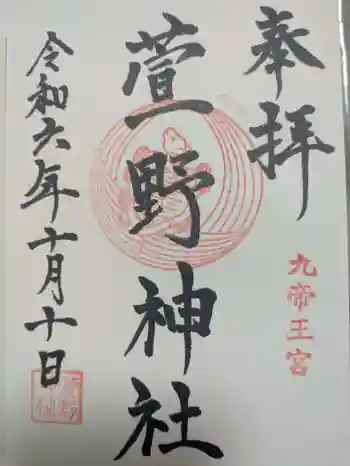 奉拝
九帝王宮
萱野神社
令和六年十月十日